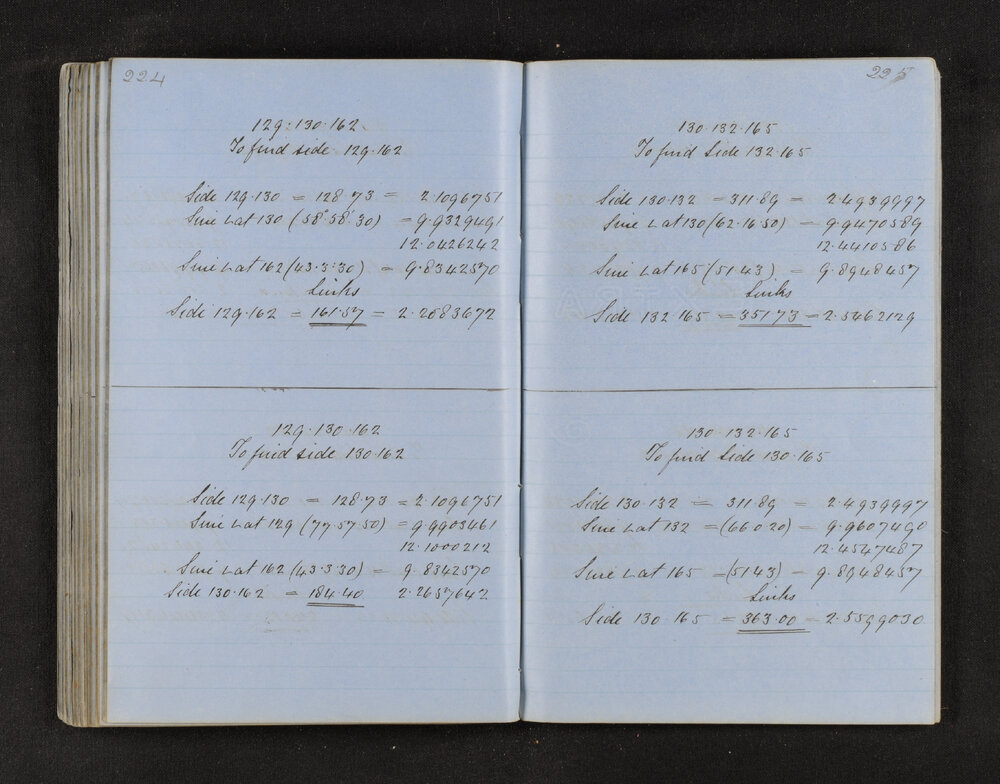 224
129·130·162
To find side 129·162
Side 129·130 = 128·73 = 2·1096751
Sine Lat 130 (58·58·30) = 9·9329491
12·0426242
Sine Lat 162 (43·3·30) = 9·8342570
Links
Side 129·162 = 161·57 = 2·2083672
129·130·162
To find side 130·162
Side 129·130 = 128·73 = 2·1096751
Sine Lat 129 (77·57·50) = 9·9903461
12·1000212
Sine Lat 162 (43·3·30) = 9·8342570
Side 130·162 = 184·40 2·2657642
225
130·132·165
To find Side 132·165
Side 130·132 = 311·89 = 2·4939997
Sine Lat 130 (62·16·50) = 9·9470589
12·4410586
Sine Lat 165 (51·43) = 9·8948457
Links
Side 132·165 = 351·73 = 2·5462129
130·132·165
To find Side 130·165
Side 130·132 = 311·89 = 2·4939997
Sine Lat 132 = (66·0·20) = 9·9607490
12·4547487
Sine Lat 165 = (51·43) = 9·8948457
Links
Side 130·165 = 363·00 = 2·5599030